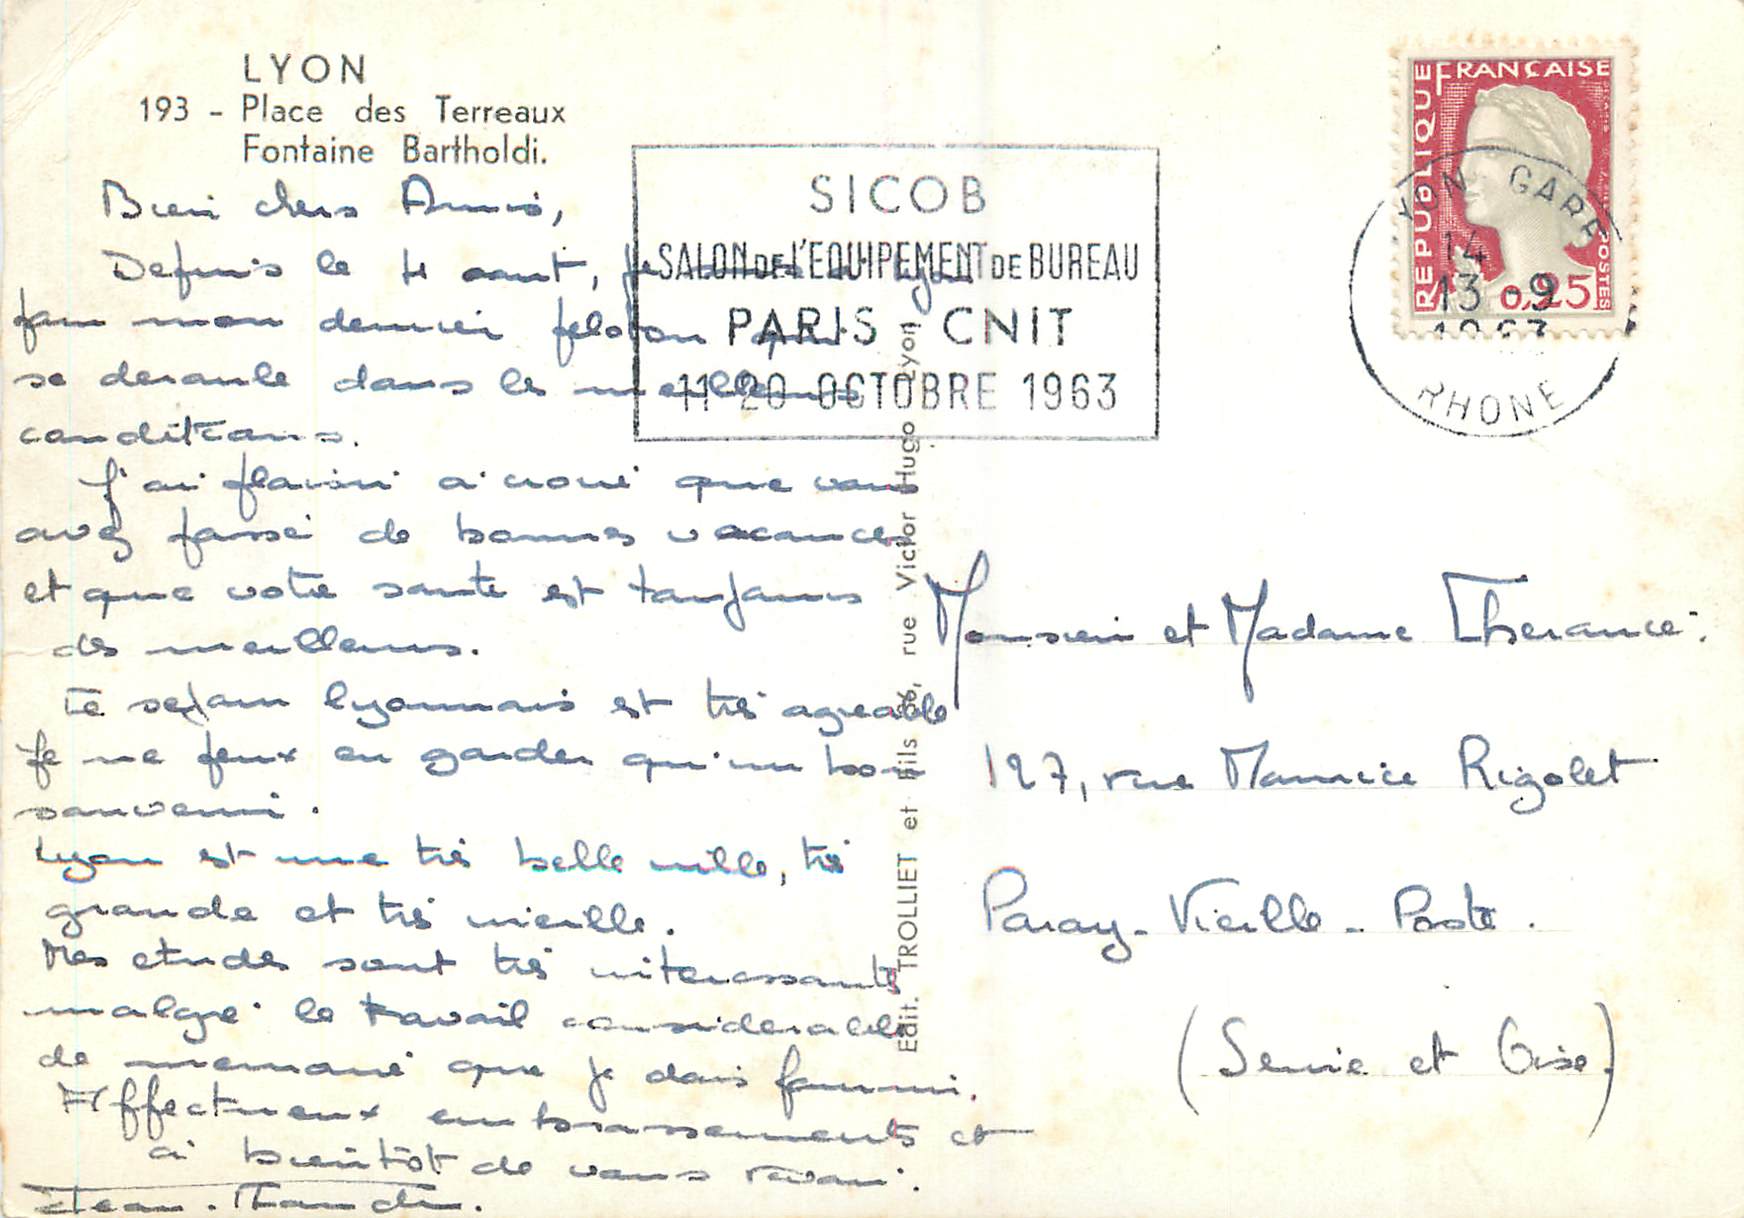 LYON
193 - Place des Terreaux
Fontaine Bartholdi.
Bien chers Amis,
Depuis le 4 aout, je suis à Lyon
pour mon dernier peloton qui
se deroule dans les meilleures
conditions.
J'ai plaisir à croire que vous
avez passé de bonnes vacances
et que votre santé est toujours
des meilleures.
Le sejour lyonnais est très agreable
Je ne peux en garder qu'un bon
souvenir.
Lyon est une très belle ville, très
grande et très vieille.
Mes etudes sont très interessantes
malgré le travail considerable
de memoire que je dois fournir.
Affectueux embrassements et
à bientôt de vous revoir.
Jean-
SICOB
SALON DE L'EQUIPEMENT DE BUREAU
PARIS - CNIT
11-20 OCTOBRE 1963
Edit. TROLLIET et Fils 56, rue Victor Hugo Lyon
REPUBLIQUE FRANÇAISE
POSTES
0,25
LYON GARE
14
13-9
1963
RHONE
Monsieur et Madame Therance.
127, rue Maurice Rigolet
Paray-Vieille-Poste.
(Seine et Oise)